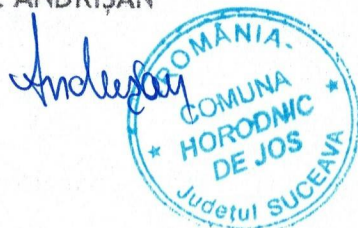 ANDRIȘAN
Andrișan
ROMÂNIA.
COMUNA
HORODNIC
DE JOS
* Județul SUCEAVA *